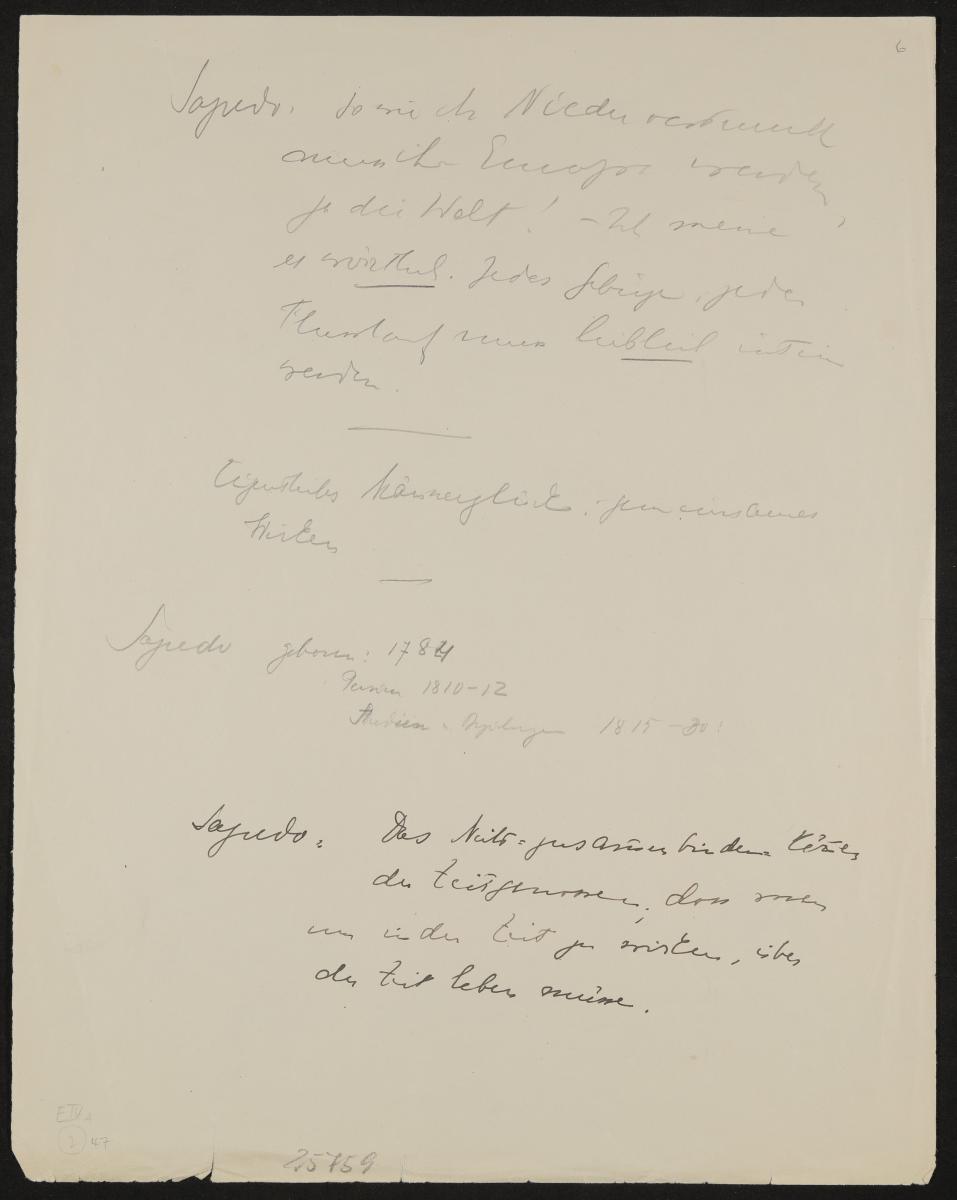 6
Sagredo. so wie ihr Niederoesterreich
muss ihr Europa werden,
ja die Welt! – Ich meine
es wörtlich. Jedes Gebirge, jeder
Flusslauf muss leiblich intim
werden.
Eigentliches Männerglück: gemeinsames
Wirken
Sagredo geboren: 1784
Persien 1810–12
Studien 1815–20
Sagredo: Das Nicht-zusammenbinden können
der Zeitgenossen, dass man
um in der Zeit zu wirken, über
der Zeit leben müsse.
E IV A
2 47
25759